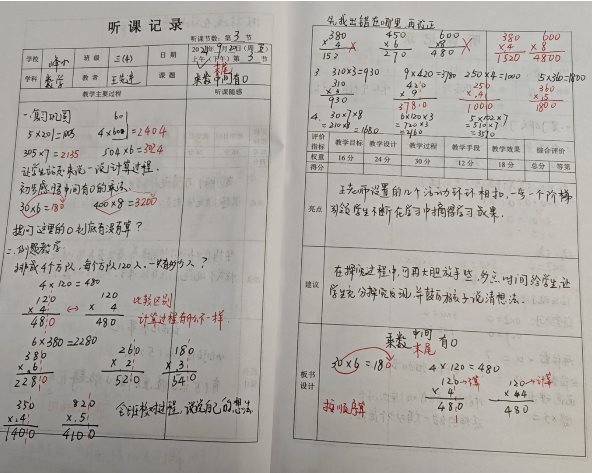 听课记录
听课节数：第 3 节
学校 班级 三(4) 日期 9月 日(周五) 上午(下午)第 3 节
学科 数学 教者 课题 乘数中间有0
末尾
教学主要过程 听课随感
一、复习巩固
5×201=1005 4×601=2404
305×7=2135 504×6=3024
让学生说一说计算过程.
初步感悟中间有0的乘法.
30×6=180 400×8=3200
提问这里的0到底有没有算？
二、例题教学
排成4个方队，每个方队120人，一共有多少人？
4×120=480
120 120
×4 ↔ × 4
480 480
比较区别
计算过程有什么不一样.
6×380=2280
380 260 180
×6 ×2 ×3
2280 520 540
350 820
×4 ×5
1400 4100
全班核对过程，说说自己的想法
先找出错在哪里，再改正
380 450 600 380 600
×4 ×6 ×8 ×4 ×8
152 270 480 1520 4800
3. 310×3=930 9×420=3780 250×4=1000 5×360=1800
310 420 250 360
×3 ×9 ×4 ×5
930 3780 1000 1800
4. 30×7×8 6×120×3 5×102×7
=210×8 =720×3 =510×7
=1680 =2160 =3570
评价指标 教学目标 教学设计 教学过程 教学手段 教学效果 综合评价
权重 16分 24分 30分 12分 18分 总分 等第
得分
亮点
王老师设置的几个活动环环相扣，一步一个阶梯
引领学生不断在学习中摘得学习成果.
建议
在探究过程中可再大胆放手些，多点时间给学生，让
学生充分探究发现，并鼓励核对上说清想法.
板书设计
乘数中间有0
末尾
30×6=180 4×120=480
120→ 120→计算
×4 ×4
480 480
按顺序算